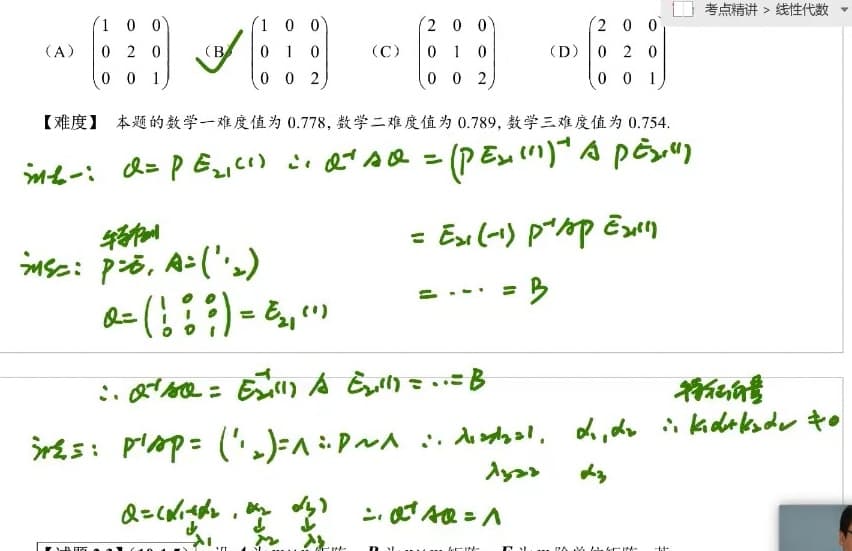 考点精讲 > 线性代数
(A) (1 0 0; 0 2 0; 0 0 1) (B) (1 0 0; 0 1 0; 0 0 2) (C) (2 0 0; 0 1 0; 0 0 2) (D) (2 0 0; 0 2 0; 0 0 1)
【难度】 本题的数学一难度值为 0.778, 数学二难度值为 0.789, 数学三难度值为 0.754.
法一: Q = P E₂₁(1) ∴ Q⁻¹AQ = (P E₂₁(1))⁻¹ A P E₂₁(1)
= E₂₁(-1) P⁻¹AP E₂₁(1)
= ... = B
特例
法二: P=E, A=(1 1 2)
Q = (1 0 0; 1 1 0; 0 0 1) = E₂₁(1)
∴ Q⁻¹AQ = E₂₁⁻¹(1) A E₂₁(1) = ... = B
特征向量
法三: P⁻¹AP = (1 1 2) = Λ ∴ P~Λ ∴ λ₁=λ₂=1, α₁,α₂ ∴ k₁α₁+k₂α₂ ≠0
λ₃=2 α₃
Q=(α₁+α₂, α₂ α₃) ∴ Q⁻¹AQ = Λ
λ₁ λ₂ λ₃